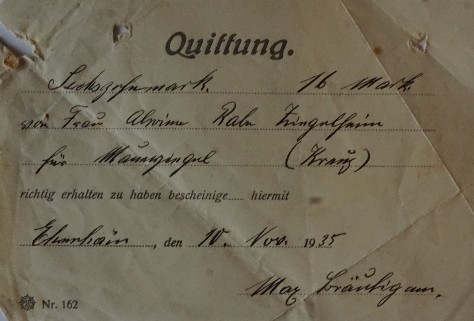 Quittung.
Sechszehnmark. 16 Mark.
von Frau Alwine Rabe Ziegelheim
für Mauerziegel (Kreuz)
richtig erhalten zu haben bescheinige hiermit
, den 10. Nov. 1935
Max Bräutigam.
Nr. 162